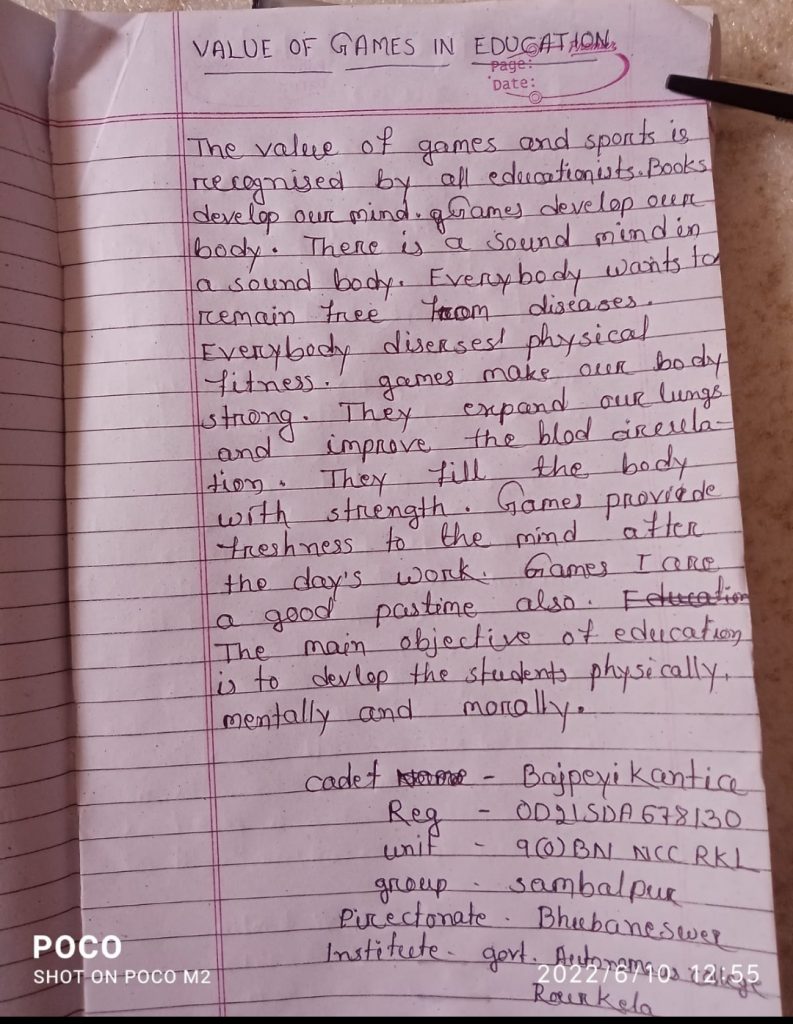 VALUE OF GAMES IN EDUCATION
Page:
Date:
The value of games and sports is
recognised by all educationists. Books
develop our mind. gGames develop our
body. There is a sound mind in
a sound body. Everybody wants to
remain free from diseases.
Everybody disersest physical
fitness. games make our body
strong. They expand our lungs
and improve the blod circula-
tion. They fill the body
with strength. Games provide
freshness to the mind after
the day's work. Games I are
a good pastime also. Education
The main objective of education
is to devlop the students physically,
mentally and morally.
cadet - Bajpeyi Kantica
Reg - OD21SDA678130
unit - 9(O) BN NCC RKL
group - sambalpur
Directorate - Bhubaneswer
Institute - govt. Autonomous college
Rourkela
POCO
SHOT ON POCO M2
2022/6/10 12:55